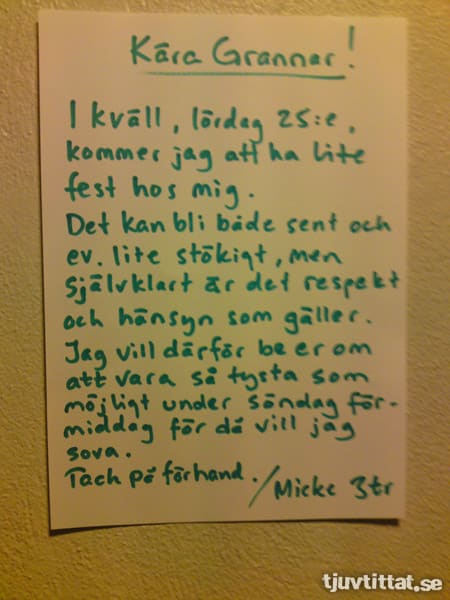 Kära Grannar!
I kväll, lördag 25:e,
kommer jag att ha lite
fest hos mig.
Det kan bli både sent och
ev. lite stökigt, men
självklart är det respekt
och hänsyn som gäller.
Jag vill därför be er om
att vara så tysta som
möjligt under söndag för-
middag för då vill jag
sova.
Tack på förhand. / Micke 3tr
tjuvtittat.se